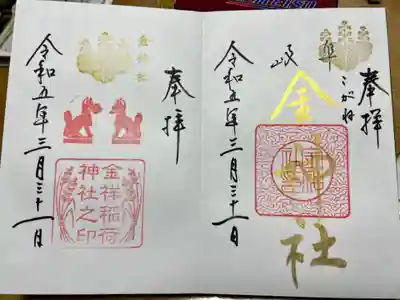 奉拝
こがね
岐阜
金神社
令和五年三月三十一日
奉拝
金祥稲荷
神社之印
令和五年三月三十一日